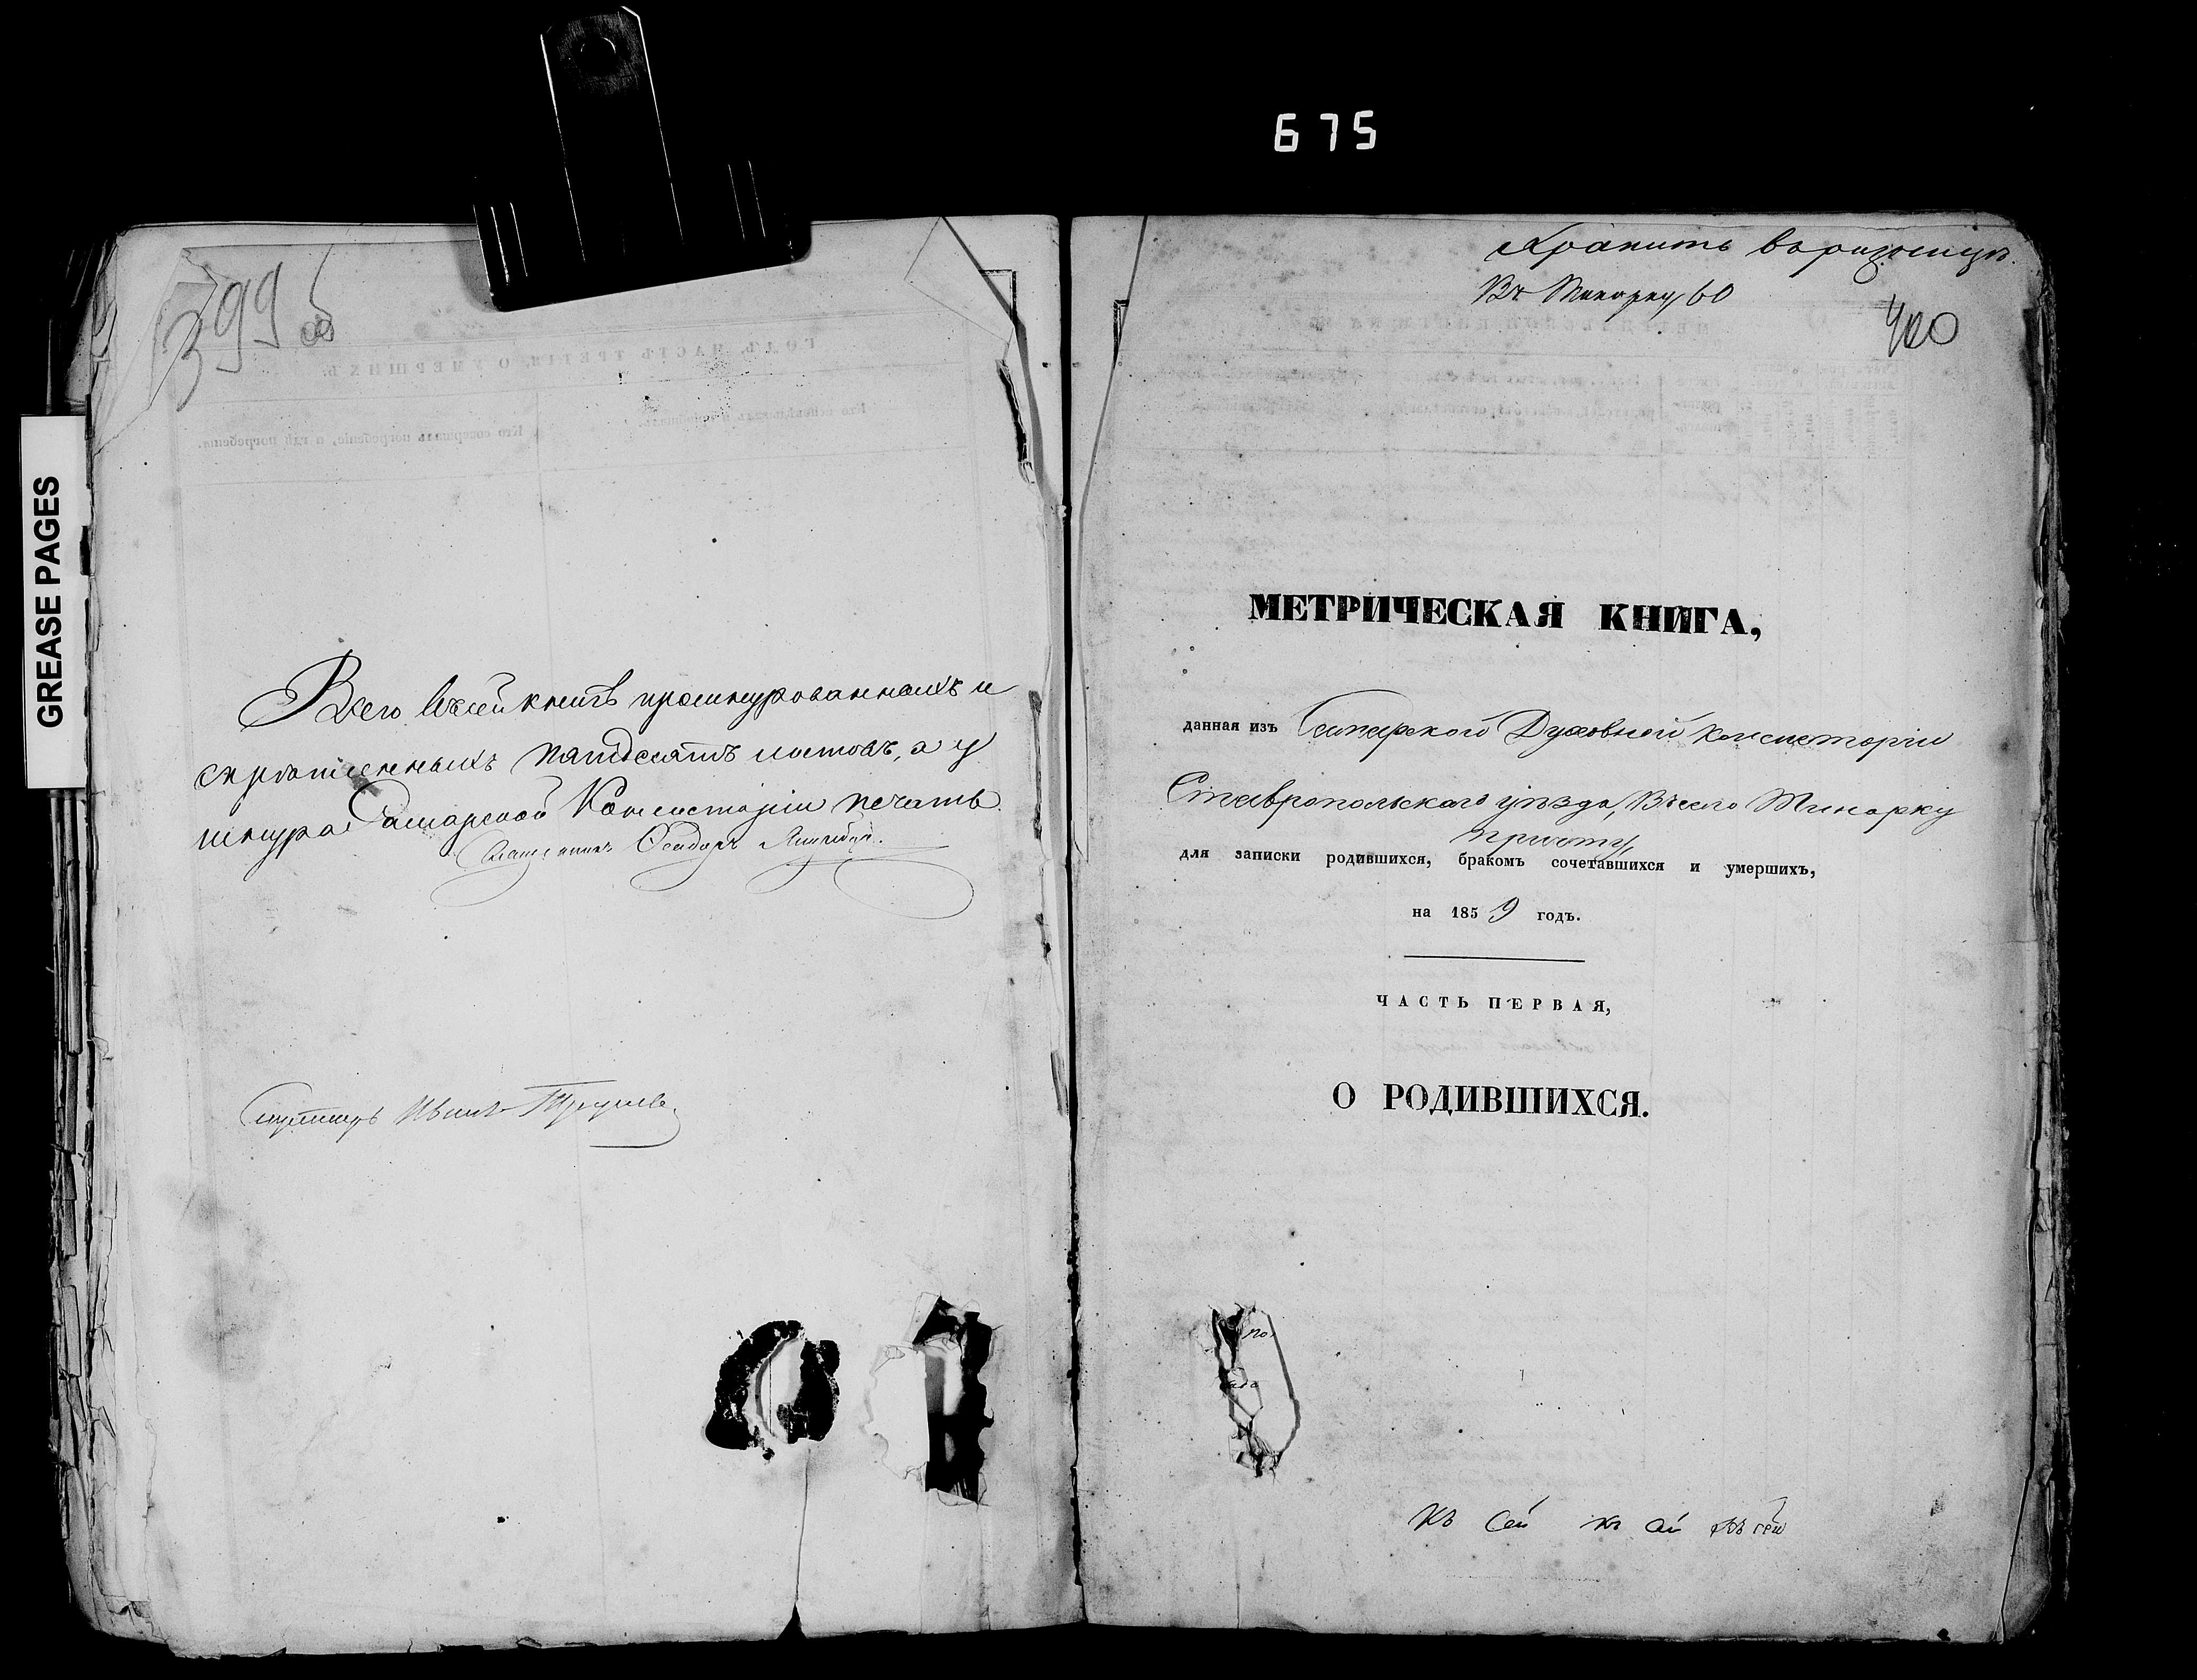 675
GREASE PAGES
399 об
Всего въ сей книгѣ прошнурованныхъ и
скрѣпленныхъ пятдесятъ листовъ, а у
шнура Самарской Консисторіи печать.
Священникъ Ѳеодоръ
Иванъ
Хранить въ ризницѣ.
Въ Минарку 60
400
МЕТРИЧЕСКАЯ КНИГА,
данная изъ Самарской Духовной Консисторіи
Ставропольскаго уѣзда, Въ село Минарку
причту,
для записки родившихся, бракомъ сочетавшихся и умершихъ,
на 1859 годъ.
ЧАСТЬ ПЕРВАЯ,
О РОДИВШИХСЯ.
по
Къ сей